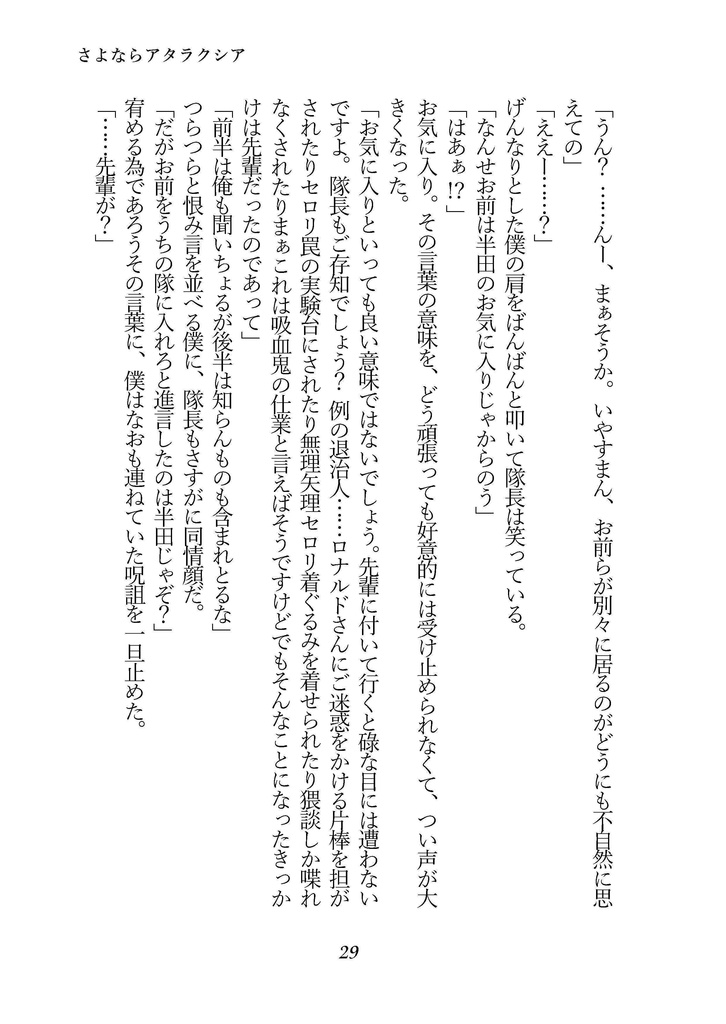 さよならアタラクシア
「うん？ ……んー、まぁそうか。いやすまん、お前らが別々に居るのがどうにも不自然に思
えての」
「ええー……？」
げんなりとした僕の肩をばんばんと叩いて隊長は笑っている。
「なんせお前は半田のお気に入りじゃからのう」
「はあぁ!?」
お気に入り。その言葉の意味を、どう頑張っても好意的には受け止められなくて、つい声が大
きくなった。
「お気に入りといっても良い意味ではないでしょう。先輩に付いて行くと碌な目には遭わない
ですよ。隊長もご存知でしょう？ 例の退治人……ロナルドさんにご迷惑をかける片棒を担が
されたりセロリ罠の実験台にされたり無理矢理セロリ着ぐるみを着せられたり猥談しか喋れ
なくされたりまぁこれは吸血鬼の仕業と言えばそうですけどでもそんなことになったきっか
けは先輩だったのであって」
「前半は俺も聞いちょるが後半は知らんものも含まれとるな」
つらつらと恨み言を並べる僕に、隊長もさすがに同情顔だ。
「だがお前をうちの隊に入れろと進言したのは半田じゃぞ？」
宥める為であろうその言葉に、僕はなおも連ねていた呪詛を一旦止めた。
「……先輩が？」
29